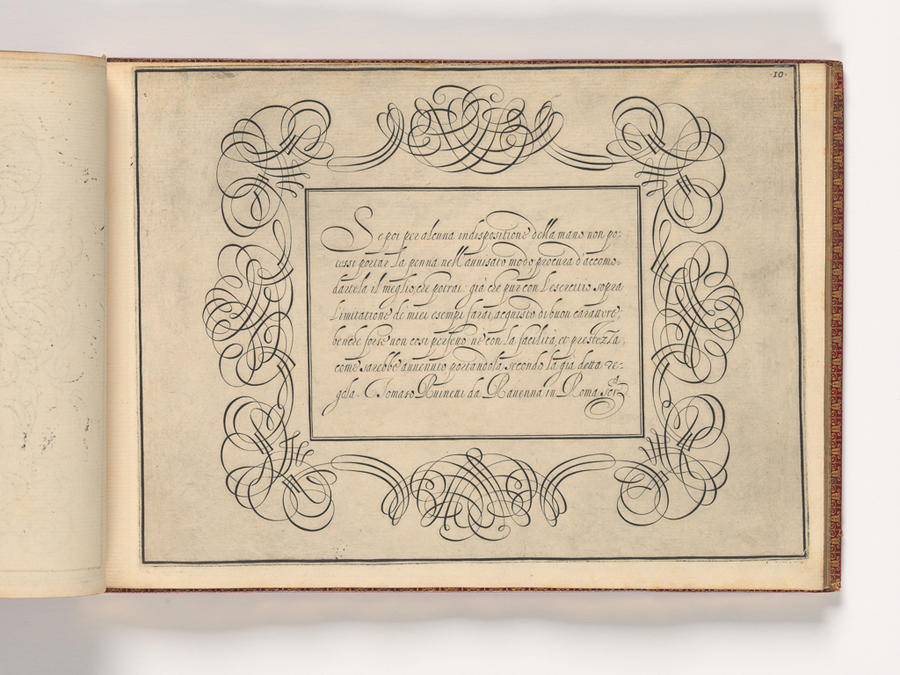 ·10·
Se poi per alcuna indispositione della mano non po:
tessi portar la penna nell'auuisato modo, procura d'accomo:
dartela il meglio, che potrai: già che pur con l'esercitio sopra
l'imitatione de miei esempi farai acquisto di buon carattere,
benche forse non così perfetto, nè con la facilità, et prestezza,
come sarebbe auuenuto portandola secondo la già detta re:
gola. Tomaso Ruinetti da Rauenna in Roma scr.